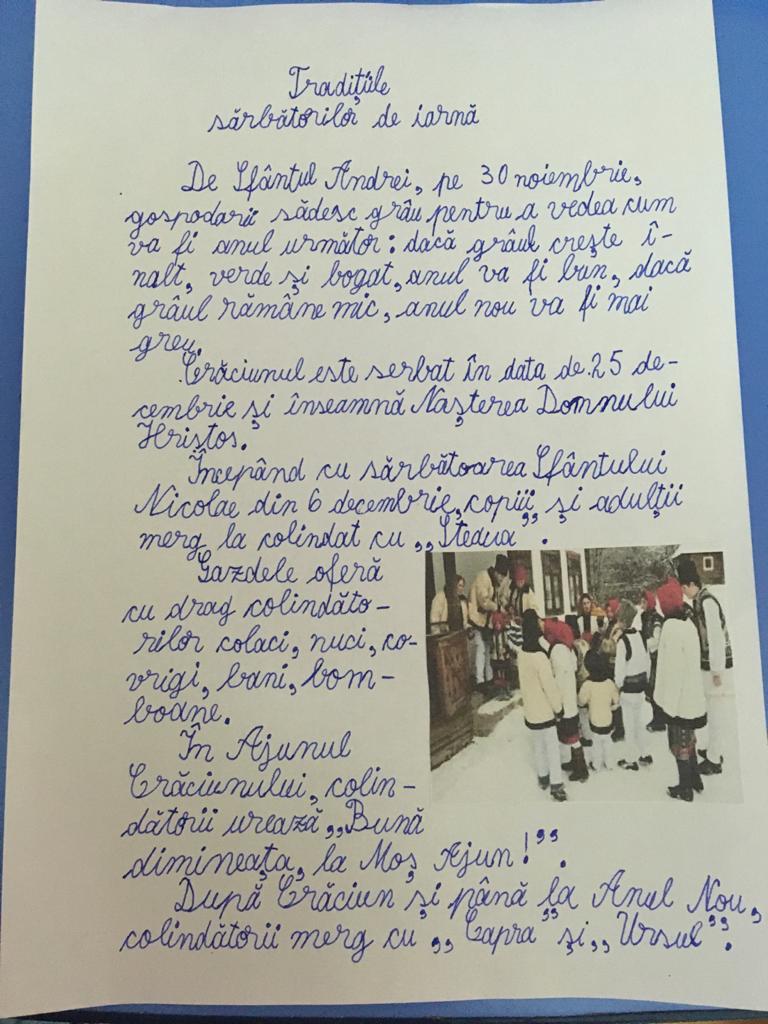 Tradițiile
sărbătorilor de iarnă
De Sfântul Andrei, pe 30 noiembrie,
gospodarii sădesc grâu pentru a vedea cum
va fi anul următor: dacă grâul crește î-
nalt, verde și bogat, anul va fi bun, dacă
grâul rămâne mic, anul nou va fi mai
greu.
Crăciunul este serbat în data de 25 de-
cembrie și înseamnă Nașterea Domnului
Hristos.
Începând cu sărbătoarea Sfântului
Nicolae din 6 decembrie, copiii și adulții
merg la colindat cu ,,Steaua”.
Gazdele oferă
cu drag colindăto-
rilor colaci, nuci, co-
vrigi, bani, bom-
boane.
În Ajunul
Crăciunului, colin-
dătorii urează ,,Bună
dimineața, la Moș Ajun!”.
După Crăciun și până la Anul Nou,
colindătorii merg cu ,,Capra” și ,,Ursul”.